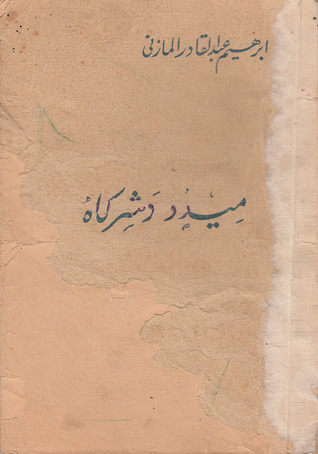 ابرهيم عبد القادر المازنى
ميدو وشركاه